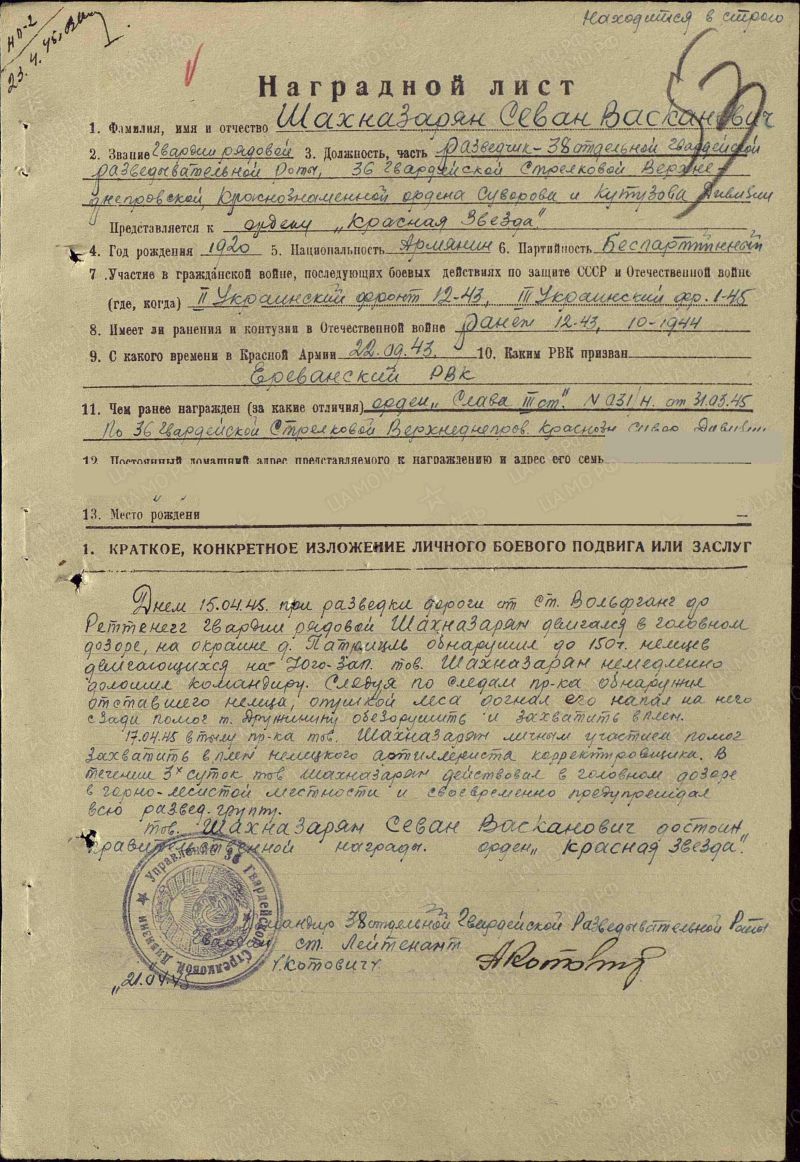 Находится в строю
23.4.45
Наградной лист
1. Фамилия, имя и отчество Шахназарян Севан Васканович
2. Звание Гвардии рядовой 3. Должность, часть разведчик - 38 отдельной Гвардейской
разведывательной Роты, 36 Гвардейской Стрелковой Верхне-
днепровской, Краснознаменной ордена Суворова и Кутузова Дивизии
Представляется к ордену „Красная Звезда".
4. Год рождения 1920 5. Национальность Армянин 6. Партийность Беспартийный
7. Участие в гражданской войне, последующих боевых действиях по защите СССР и Отечественной войне
(где, когда) II Украинский фронт 12-43, III Украинский фр. 1-45
8. Имеет ли ранения и контузии в Отечественной войне Ранен 12-43, 10-1944
9. С какого времени в Красной Армии 22.09.43. 10. Каким РВК призван
Ереванский РВК
11. Чем ранее награжден (за какие отличия) орден „Слава III ст". N 031/н. от 31.03.45
По 36 Гвардейской Стрелковой Верхнеднепров. Краснозн
12. Постоянный домашний адрес представляемого к награждению и адрес его семь
13. Место рождени
1. КРАТКОЕ, КОНКРЕТНОЕ ИЗЛОЖЕНИЕ ЛИЧНОГО БОЕВОГО ПОДВИГА ИЛИ ЗАСЛУГ
Днем 15.04.45. при разведки дороги от ст. Вольфганг до
Реттенегг Гвардии рядовой Шахназарян двигался в головном
дозоре, на окраине д. Патрицль обнаружил до 150ч. немцев
двигающихся на Юго-Зап. тов. Шахназарян немедленно
доложил командиру. Следуя по следам пр-ка обнаружил
отставшего немца, опушкой леса догнал его напал на него
сзади помог т. Дружинину обезоружить и захватить в плен.
17.04.45 в тылу пр-ка тов. Шахназарян личным участием помог
захватить в плен немецкого артиллериста корректировщика. В
течении 3х суток тов Шахназарян действовал в головном дозоре
в горно-лесистой местности и своевременно предупреждал
всю развед. группу.
тов. Шахназарян Севан Васканович достоин
правительственной награды. орден „Красная Звезда".
Управление 36 Гвардейской Стрелковой Дивизии
Командир 38 отдельной Гвардейской Разведывательной Роты
Гвардии ст. Лейтенант
/.Котович/.
„21.04.45
ЦАМО.РФ